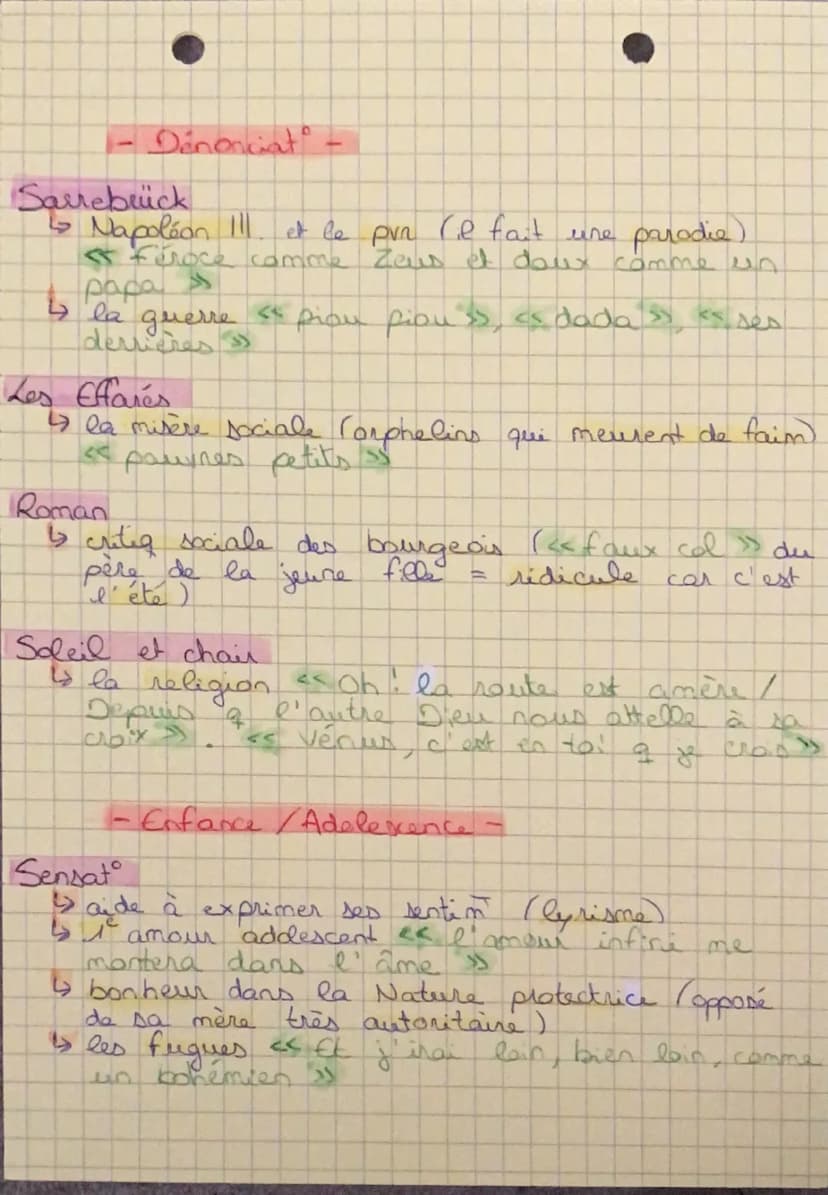 - Dénonciat° -
Sarrebrück
↳ Napoléon III. et le pvr (il fait une parodie)
« féroce comme Zeus et doux comme un
papa »
↳ la guerre « piou piou », « dada », « ses
derrières »
Les Effarés
↳ la misère sociale (orphelins qui meurent de faim)
« pauvres petits »
Roman
↳ critiq sociale des bourgeois (« faux col » du
père de la jeune fille = ridicule car c'est
l'été)
Soleil et chair
↳ la religion « Oh! la route est amère /
Depuis q l'autre Dieu nous attelle à sa
croix ». « Vénus, c'est en toi q je crois »
- Enfance / Adolescence -
Sensat°
↳ aide à exprimer ses sentim̄ (lyrisme)
↳ 1e amour addolescent « l'amour infini me
montera dans l'âme »
↳ bonheur dans la Nature protectrice (opposé
de sa mère très autoritaire)
↳ les fugues « Et j'irai loin, bien loin, comme
un bohémien »